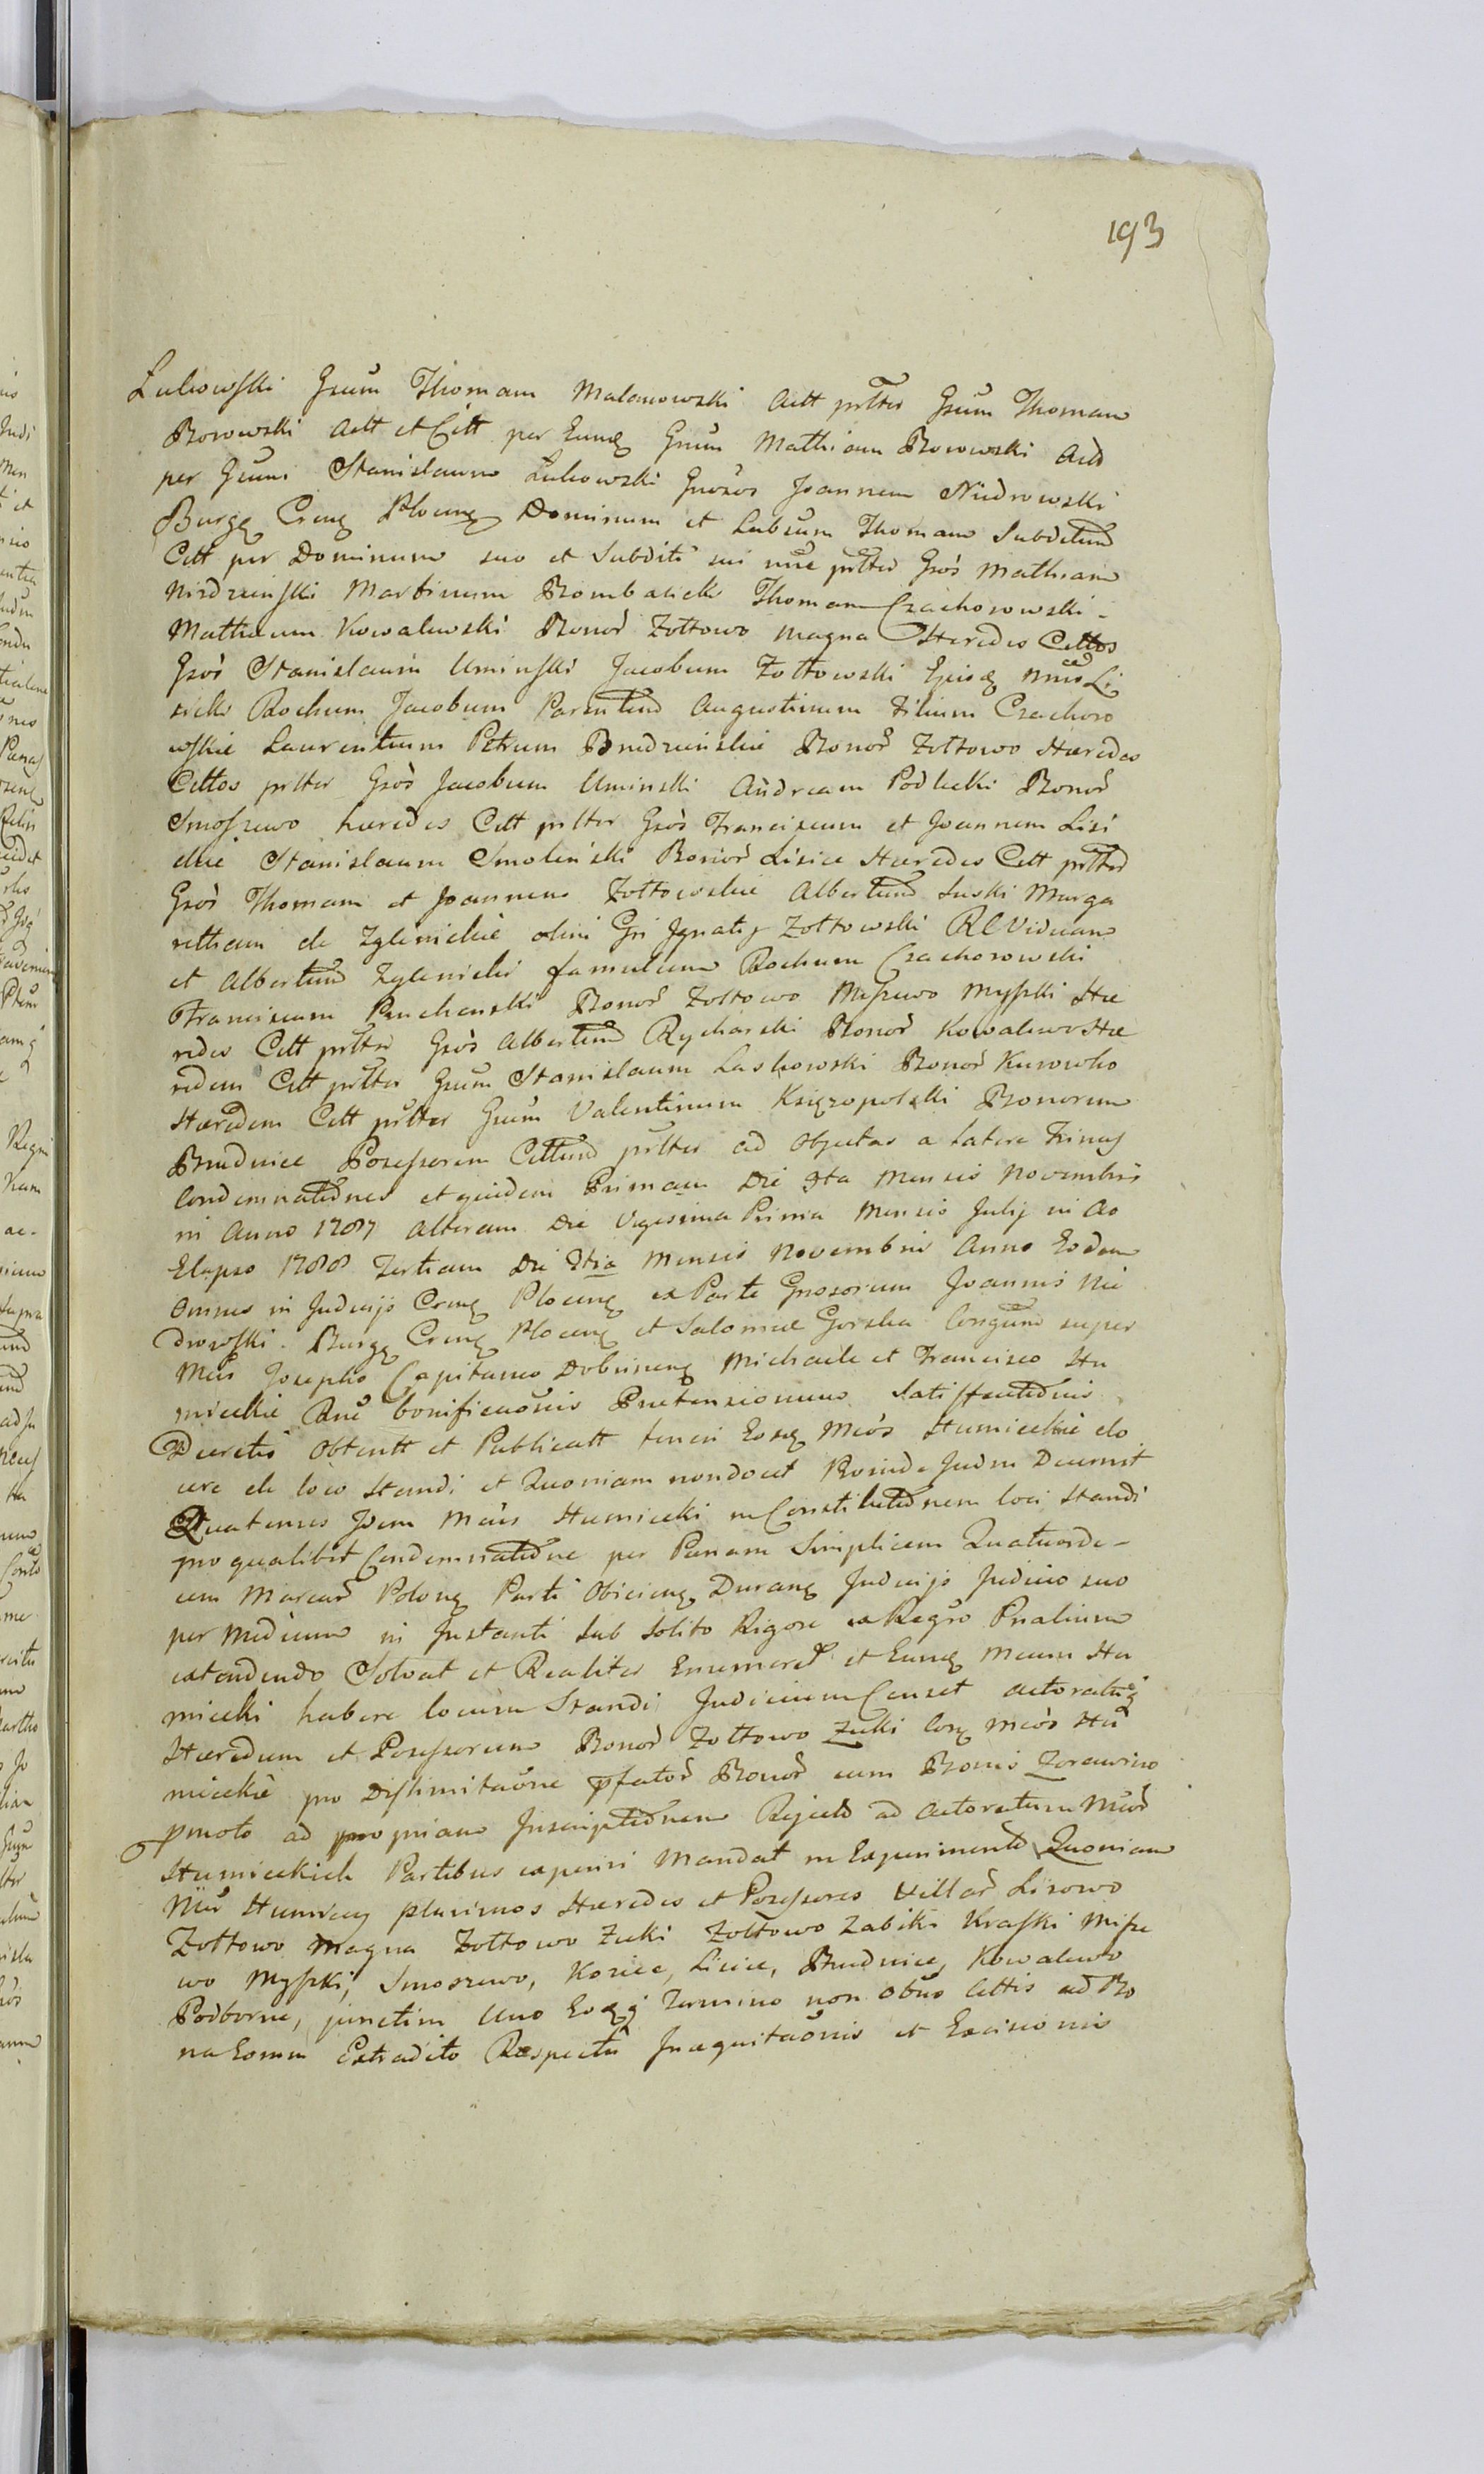 193
Lukowski Gsum Thomam Malanowski Actt prtter Gsum Thomam
Borowski Actt et Citt per Eunq Gsum Mathiam Borowski Act
per Gsum Stanislaum Lukowski Gnosos Joannem Niedrowski
Burgg Creng Ploceng Dominum et Labsum Thomam Subditum
Citt per Dominum suo et Subditi sui prtter Gsos Mathiam
Martinum Bombalick Thomam Czachorowski
Mathaeum Kowalewski Bonor Zołtowo Magna Haeredes Cittos
Gsos Stanislaum Uminski Jacobum Zołtowski Li
sicki Rochum Jacobum Parentem Augustinum Filium Czachoro
wskie Laurentium Petrum Brudzinskie Bonor Zołtowo Haeredes
Cittos prtter Gsos Jacobum Uminski Andream Podlecki Bonor
Smoszewo haeredes Citt prtter Gsos Franciscum et Joannem Lisi
ckie Stanislaum Smolinski Bonor Lisice Haeredes Citt prtter
Gsos Thomam et Joannem Zołtowskie Albertum Suski Marga
retham de Zglenickie olim Gsi Ignatij Zołtowski RC Viduam
et Albertum Zglenicki famulum Rochum Czachorowski
Franciscum Bonor Zołtowo Miszewo Myszki Hae
redes Citt prtter Gsos Albertum Rycharski Bonor Kowalewo Hae
redem Citt prtter Gsum Stanislaum Laskowski Bonor Kurowko
Haeredem Citt prtter Gsum Valentinum Księzopolski Bonorum
Brudnice Possessorem Cittum prtter ad Objectas a latere Trinas
Condemnationes et quidem Primam Die 9ta Mensis Novembris
in Anno 1787 Alteram Die Vigesima Prima Mensis Julij in Ao
Elapso 1788 Tertiam Die Mensis Novembris Anno Eodem
Omnes in Judicijs Creng Ploceng ex Parte Gnosorum Joannis Nie
drowski Burgg Creng Ploceng et Salomeae Gorska Congum super
Mcis Josepho Capitaneo Dobrineng Michaele et Francisco Hu
mieckie Rne bonificaonis Praetensionum Satisfactionis
Decretis Obtentt et Publicatt teneri Eosq Mcos Humieckie do
cere de loco Standi et Quoniam non docet Proinde Judm Decernit
Quatenus Idem Mcus Humiecki in Constitutionem loci Standi
pro qualibet Condemnatione per Paenam Simplicem Quatuorde-
cem Marcar Polong Parti Obicieng Durang Judicijs Judicio suo
per Medium in Instanti Sub Solito Rigore ex Regro Pnalium
extendendo Solvat et Realiter Enumeret et Eunq Mcum Hu
miecki habere locum Standi Judicium Censet actoratuq
Haeredum et Possessorum Bonor Zołtowo Zuki Cosq Mcos Hu
mieckie pro Dislimitaone pfator Bonor cum Bonis Zorawino
pmoto ad propriam Inscriptionem Rejecto ad Actoratum Mcor
Humieckich Partibus experiri Mandat in Experimento Quoniam
Mcus Humieccy plurimos Haeredes et Possessores Villar Lisowo
Zołtowo Magna Zołtowo Zuki Zołtowo Zabiki Kraski Misze
wo Myszki, Smoszewo, Kozice, Lisice, Brudnice, Kowalewo
Podborne, junctim Uno Eoqq Termino non obno Cittis ad Bo
na Eorum Extradito Respectu Inaequitaonis et Excisionis